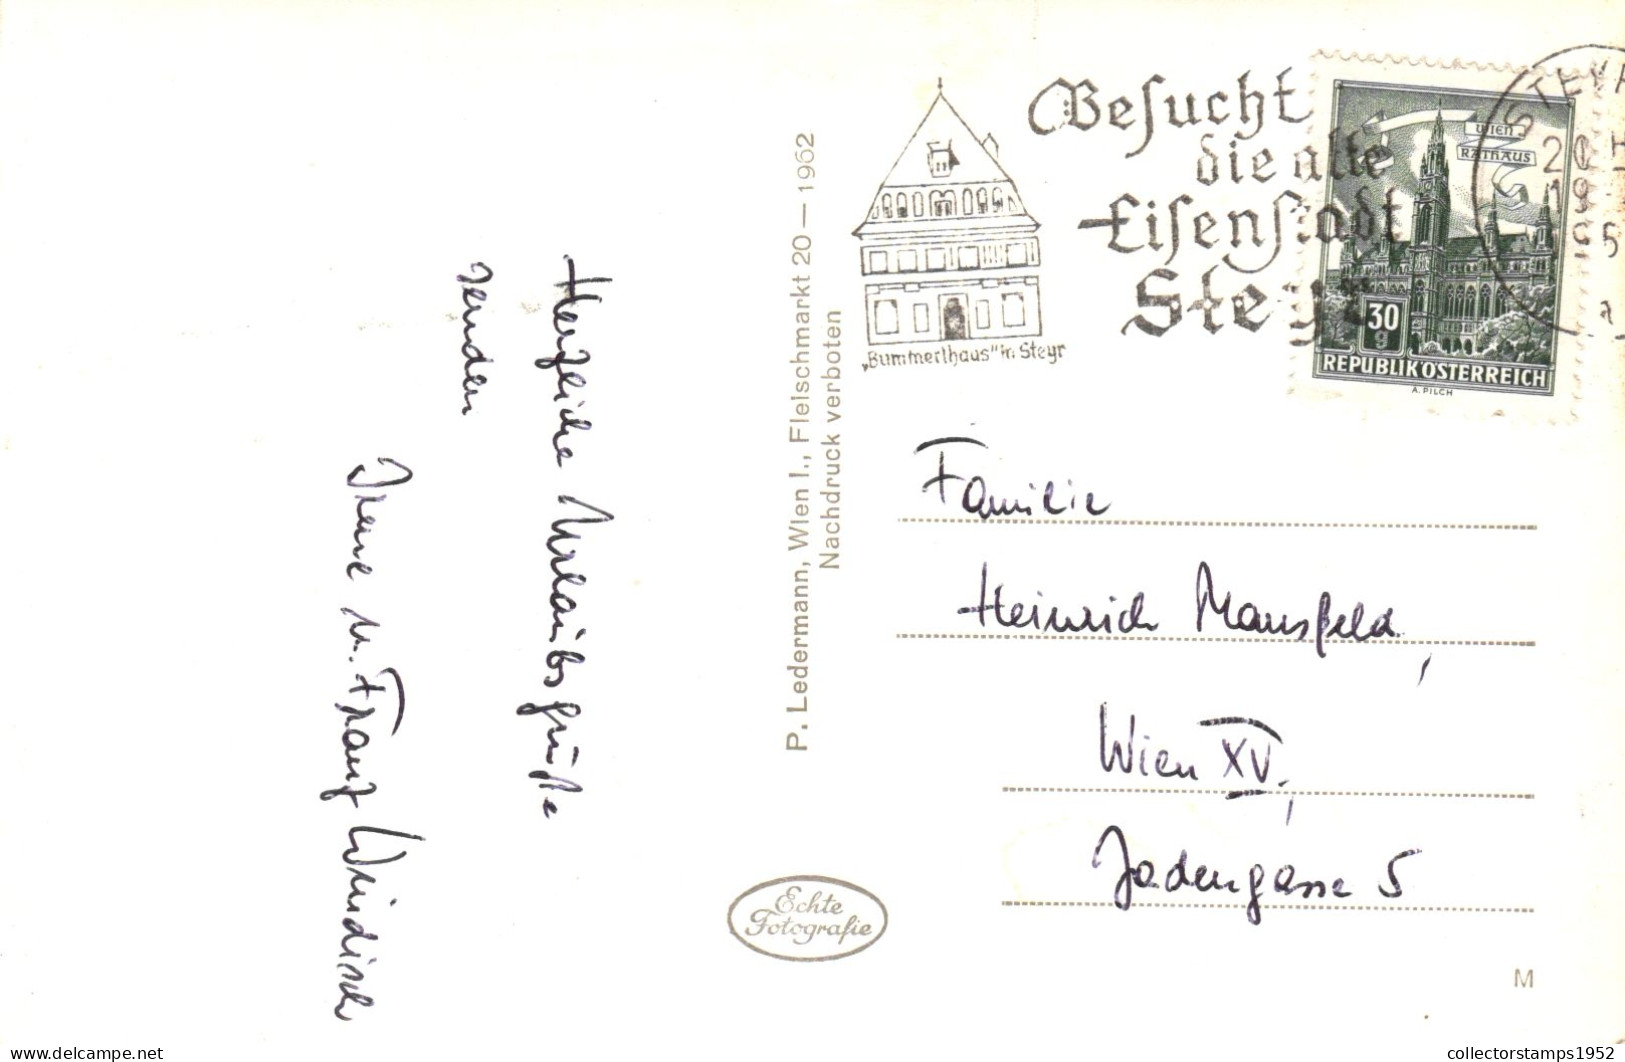 Herzliche Urlaubsgrüße
senden
Irene u. Franz Windisch
P. Ledermann, Wien I., Fleischmarkt 20 — 1962
Nachdruck verboten
Echte
Fotografie
Besucht
die alte
Eisenstadt
Steyr
„Bummerlhaus" in Steyr
STEYR
WIEN
RATHAUS
30
g
REPUBLIK ÖSTERREICH
A. PILCH
Familie
Heinrich Mansfeld,
Wien XV.,
Jadengasse 5
M
collectorstamps1952